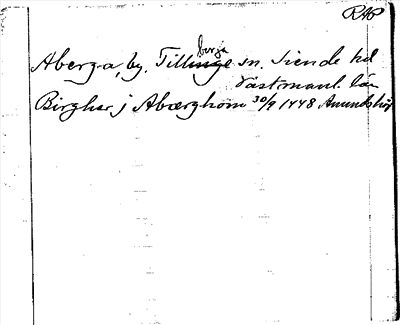 RAP
Aberga, by. Tillinge berga sn. Siende hd
Västmanl. län
Birghar j Abærghom 30/9 1448 Amundshö